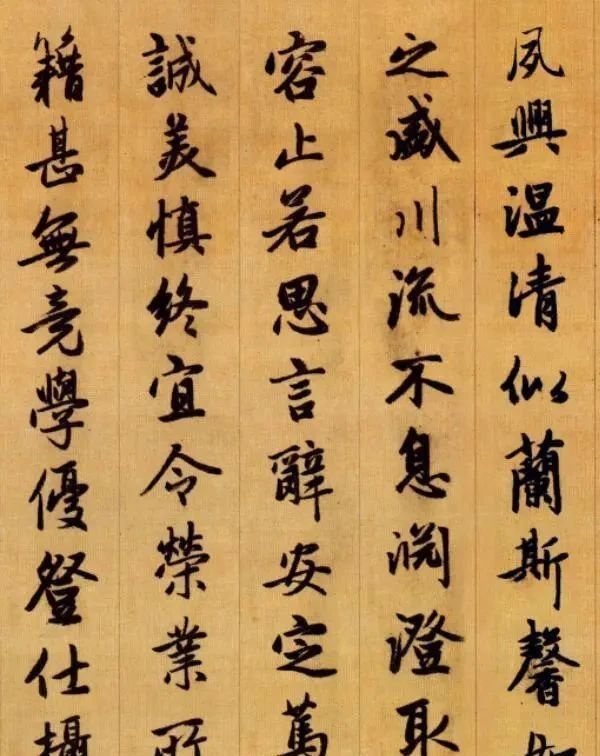 夙興温清似蘭斯馨如
之盛川流不息淵澄取
容止若思言辭安定篤
誠美慎終宜令榮業所
籍甚無竟學優登仕攝